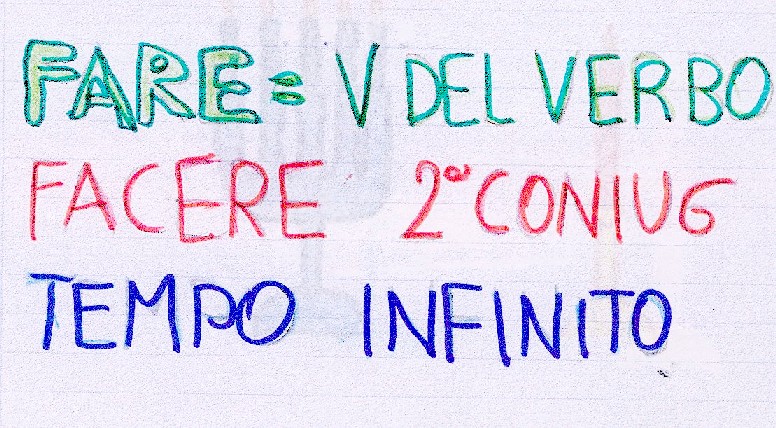 FARE = V DEL VERBO
FACERE 2ª CONIUG
TEMPO INFINITO